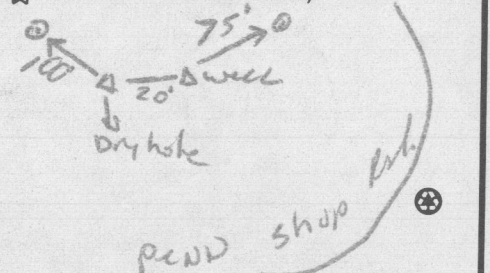 75'
100'
20'
well
Dry hole
Penn Shop Rd.